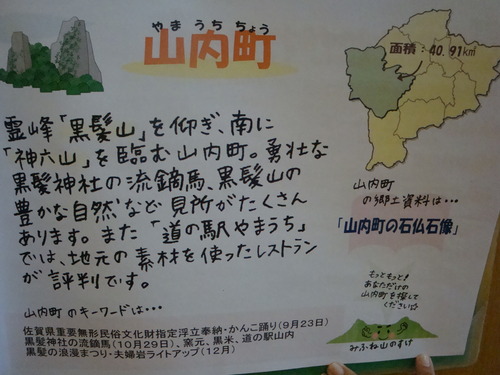 やまうちちょう
山内町
面積:40.91k㎡
霊峰「黒髪山」を仰ぎ、南に
「神六山」を臨む山内町。勇壮な
黒髪神社の流鏑馬、黒髪山の
豊かな自然など見所がたくさん
あります。また「道の駅やまうち」
では、地元の素材を使ったレストラン
が評判です。
山内町のキーワードは・・・
佐賀県重要無形民俗文化財指定浮立奉納・かんこ踊り(9月23日)
黒髪神社の流鏑馬(10月29日)、窯元、黒米、道の駅山内
黒髪の浪漫まつり・夫婦岩ライトアップ(12月)
山内町
の郷土資料は・・・
「山内町の石仏石像」
もっともっと!
あなただけの
山内町を探して
ください☆
みふね山のすけ